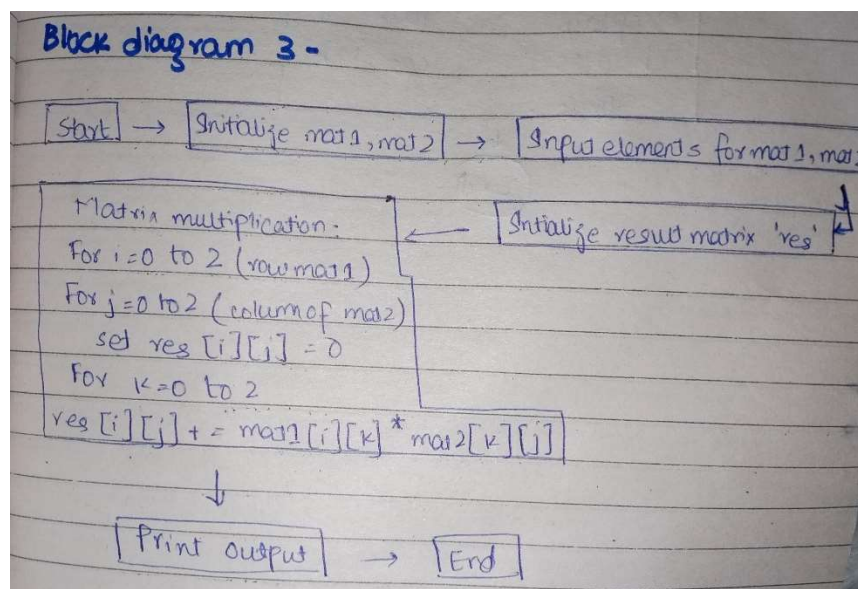 Block diagram 3 -
Start → Initialize mat1, mat2 → Input elements for mat1, mat2
Intialize resuld matrix 'res'
Matrix multiplication:
For i=0 to 2 (row mat1)
For j=0 to 2 (column of mat2)
set res [i][j] = 0
For k=0 to 2
res [i][j] + = mat1[i][k] * mat2[k][j]
Print output → End